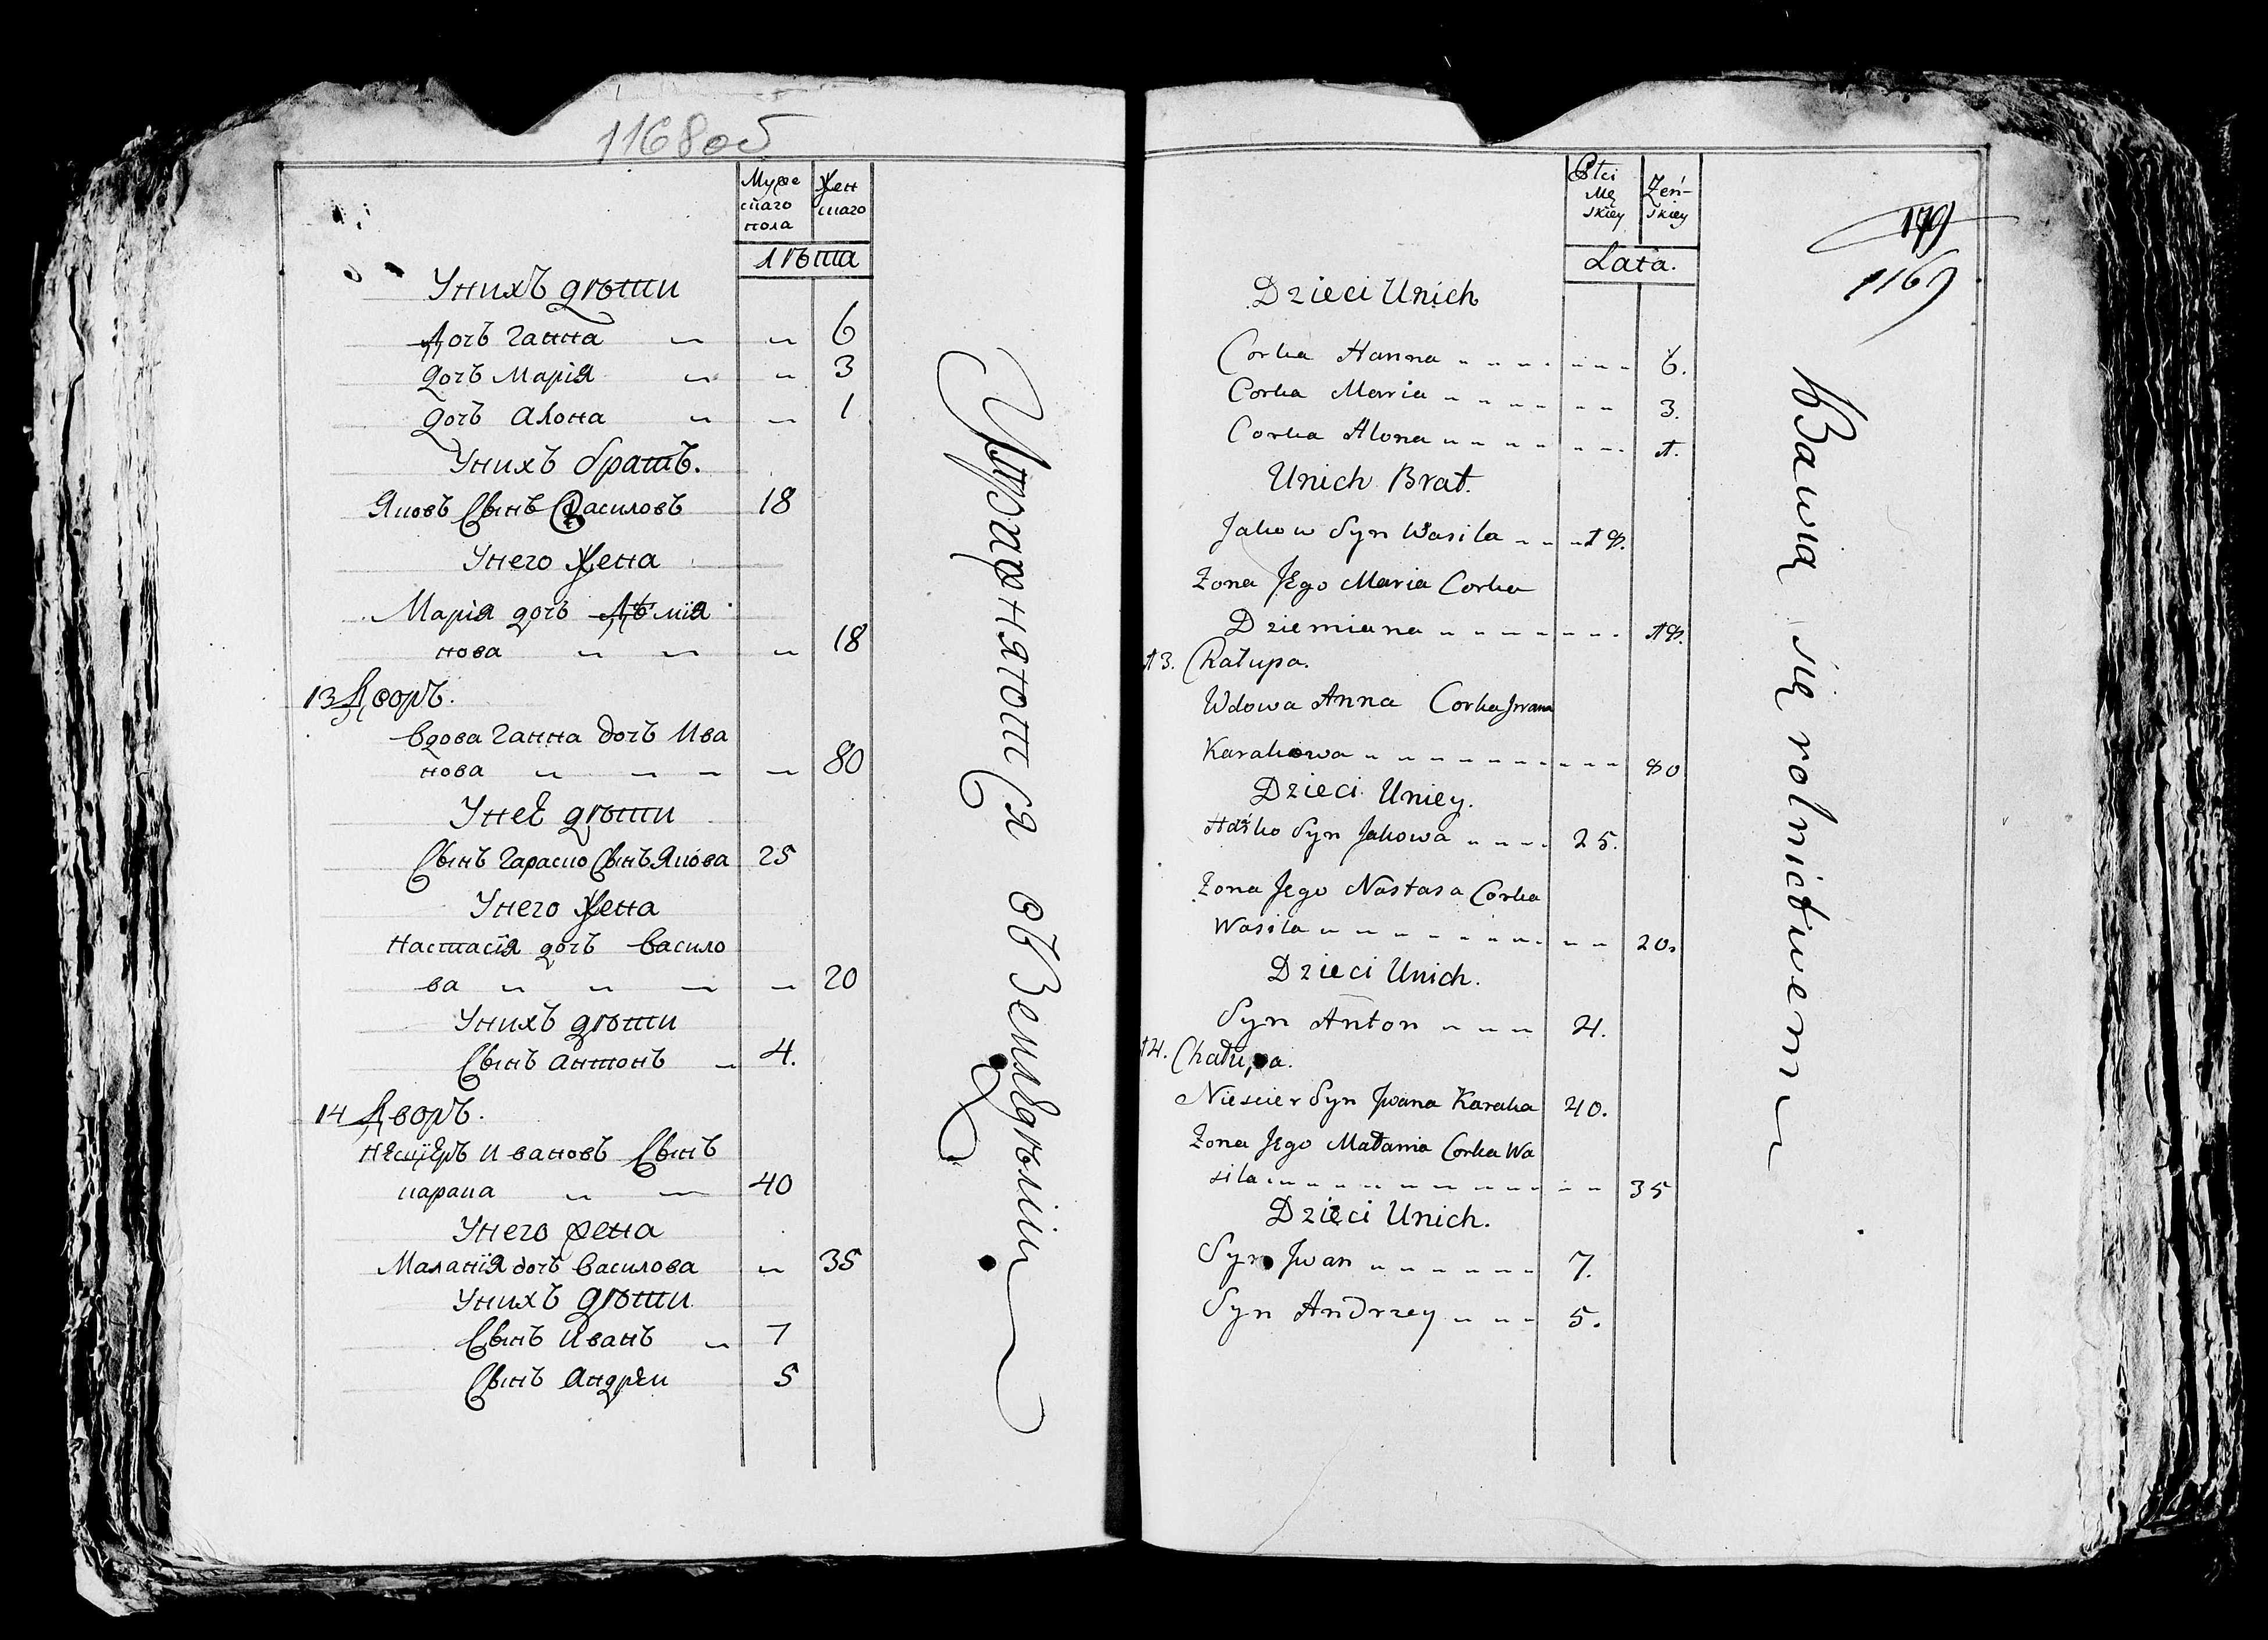 1168об
Муже Жен
скаго скаго
пола
лѣта
Унихъ дѣти
Дочь Ганна 6
Дочь Марія 3
Дочь Алона 1
Унихъ братъ.
Яковъ Сынъ Василовъ 18
Унего Жена
Марія дочь Дѣмія
нова 18
13 Дворъ.
Вдова Ганна дочь Ива
нова 80
Унеѣ дѣти
Сынъ Гараско Сынъ Якова 25
Унего Жена
Настасія дочь Васило
ва 20
Унихъ дѣти
Сынъ Антонъ 4.
14 Дворъ.
Несцеръ Ивановъ Сынъ
карака 40
Унего жена
Маланія дочь Василова 35
Унихъ дѣти
Сынъ Иванъ 7
Сынъ Андрей 5
Упражняются въ Земледѣліи
Płci Żeń-
Mę skiey
skiey
Lata.
179
1169
Dzieci Unich
Corka Hanna 6.
Corka Maria 3.
Corka Alona 1.
Unich Brat.
Jakow Syn Wasila 18.
Żona Jego Maria Corka
Dziemiana 18.
13. Chałupa.
Wdowa Anna Corka Jwana
Karakowa 80
Dzieci Uniey.
Haśko Syn Jakowa 25.
Żona Jego Nastasa Corka
Wasila 20.
Dzieci Unich.
Syn Anton 4.
14. Chałupa.
Niescier Syn Jwana Karaka 40.
Żona Jego Małania Corka Wa
sila 35
Dzieci Unich.
Syn Jwan 7.
Syn Andrzey 5.
Bawią się rolnictwem